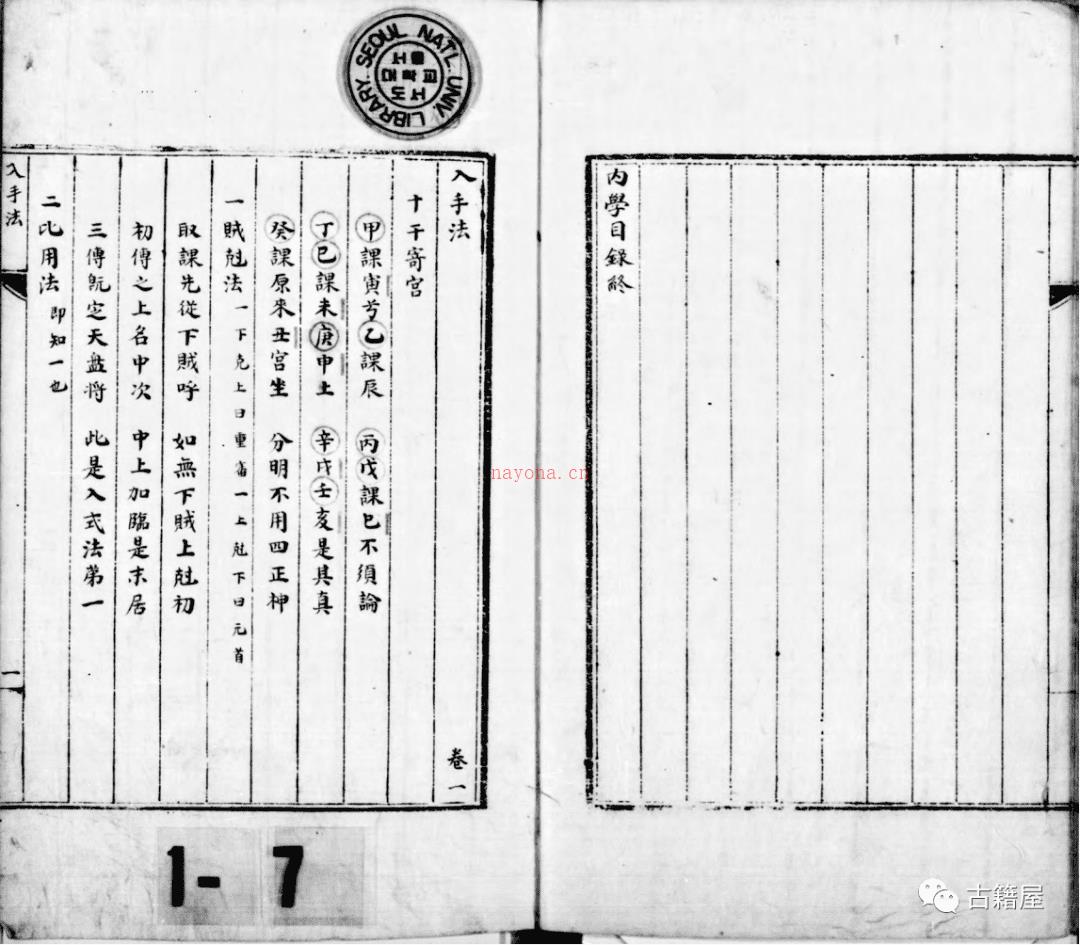 內學目錄終
入手法
卷一
十干寄宮
甲課寅兮乙課辰 丙戊課巳不須論
丁己課未庚申上 辛戌壬亥是其真
癸課原來丑宮坐 分明不用四正神
一賊尅法 一下克上曰重審一上尅下曰元首
取課先從下賊呼 如無下賊上尅初
初傳之上名中次 中上加臨是末居
三傳旣定天盤將 此是入式法第一
二比用法 即知一也
入手法
一
SEOUL NATL. UNIV. LIBRARY
nayona.cn
1- 7
古籍屋